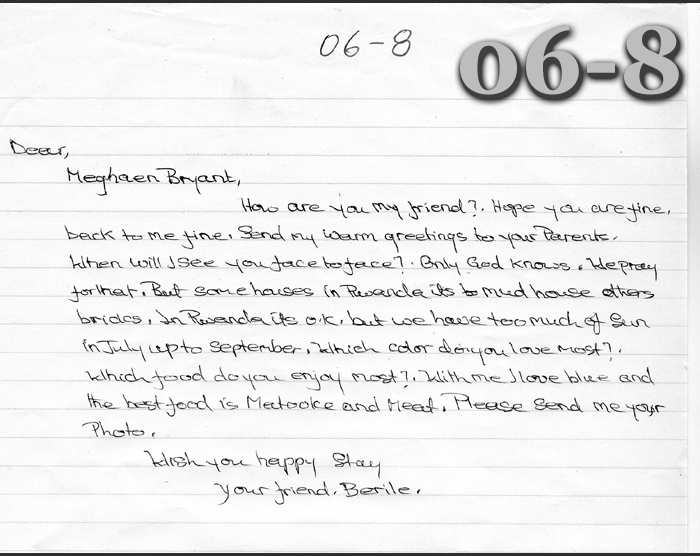 06-8
06-8
Dear,
Meghaen Bryant,
How are you my friend?. Hope you are fine,
back to me fine. Send my warm greetings to your Parents.
When will I see you face to face?. Only God knows. We pray
for that. But some houses in Rwanda its to mud house others
bricks, In Rwanda its o.k. but we have too much of Sun
in July up to September, Which color do you love most?.
Which food do you enjoy most?. With me I love blue and
the best food is Matooke and Meat. Please send me your
Photo.
Wish you happy stay
your friend. Berile.